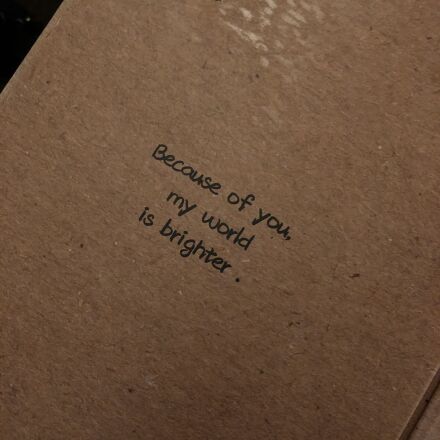 Because of you,
my world
is brighter.